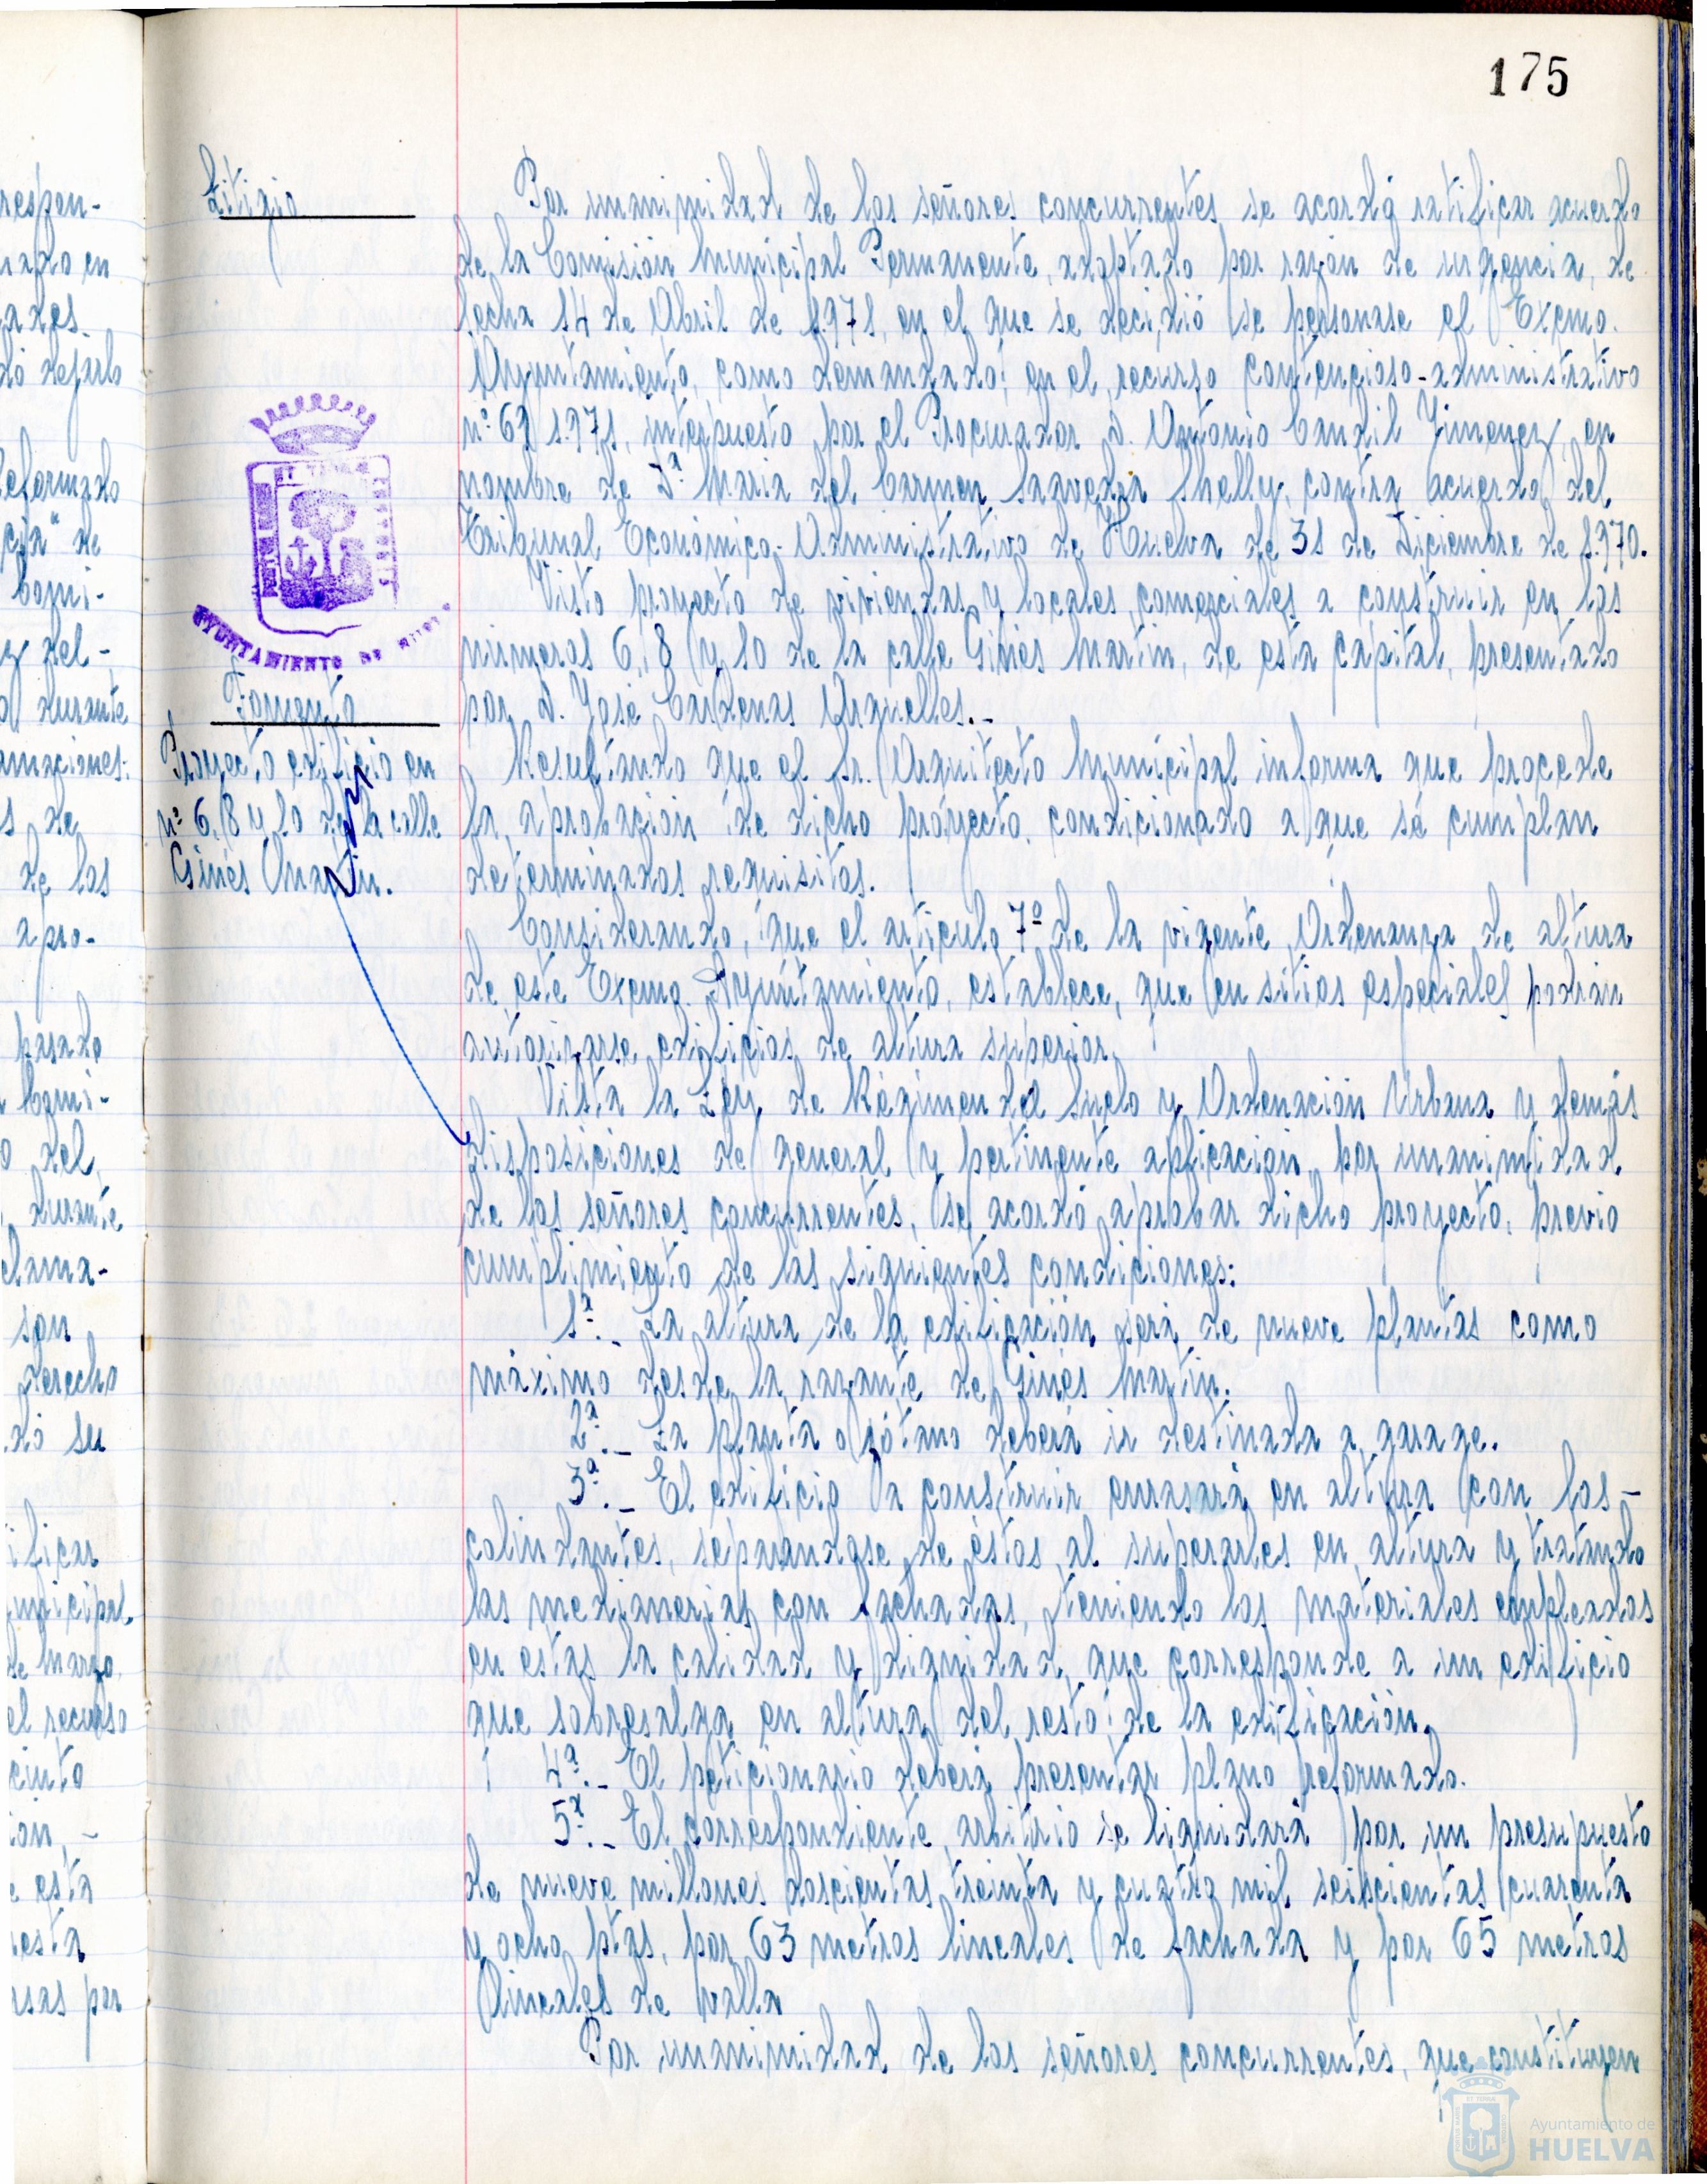 175
Litigio
Por unanimidad de los señores concurrentes se acordó ratificar acuerdo
de la Comisión Municipal Permanente, adoptado por razón de urgencia, de
fecha 14 de Abril de 1.971, en el que se decidió se personase el Excmo.
Ayuntamiento, como demandado, en el recurso contencioso-administrativo
nº 69/1.971, interpuesto por el Procurador D. Antonio Candil Jimenez, en
nombre de Dª María del Carmen Saavedra Shelly, contra acuerdo del
Tribunal Económico-Administrativo de Huelva de 31 de Diciembre de 1.970.
AYUNTAMIENTO DE
Fomento
Proyecto edificio en
nº 6, 8 y 10 de la calle
Ginés Martín.
Visto proyecto de viviendas y locales comerciales a construir en los
números 6, 8 y 10 de la calle Ginés Martín, de esta capital, presentado
por D. José Cárdenas Arguelles.-
Resultando que el Sr. Arquitecto Municipal informa que procede
la aprobación de dicho proyecto, condicionado a que se cumplan
determinados requisitos.
Considerando, que el artículo 7º de la vigente Ordenanza de altura
de este Excmo. Ayuntamiento, establece, que en sitios especiales podrán
autorizarse edificios de altura superior.
Vista la Ley de Régimen del Suelo y Ordenación Urbana y demás
disposiciones de general y pertinente aplicación, por unanimidad
de los señores concurrentes, se acordó aprobar dicho proyecto, previo
cumplimiento de las siguientes condiciones:
1ª.- La altura de la edificación será de nueve plantas como
máximo desde la razante de Ginés Martín.
2ª.- La planta o sótano deberá ir destinada a garage.
3ª.- El edificio a construir enrasará en altura con los-
colindantes, separandose de éstos al superarles en altura y tratando
las medianerías con fachadas, teniendo los materiales empleados
en estas la calidad y dignidad que corresponde a un edificio
que sobresalga en altura del resto de la edificación.
4ª.- El peticionario deberá presentar plano reformado.
5ª.- El correspondiente arbitrio se liquidará por un presupuesto
de nueve millones doscientas treinta y cuatro mil seiscientas cuarenta
y ocho ptas, por 63 metros lineales de fachada y por 65 metros
lineales de valla
Por unanimidad de los señores concurrentes, que constituyen
Ayuntamiento de
HUELVA